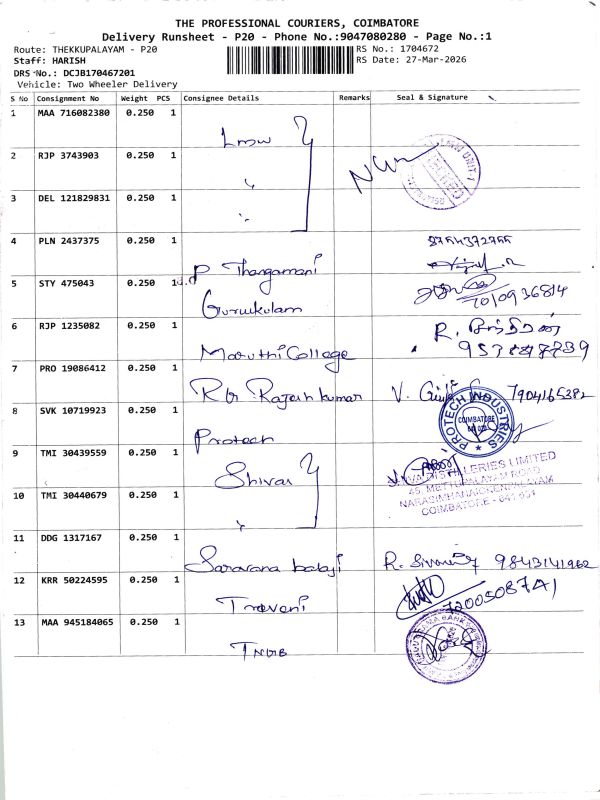 THE PROFESSIONAL COURIERS, COIMBATORE
Delivery Runsheet - P20 - Phone No.:9047080280 - Page No.:1
Route: THEKKUPALAYAM - P20
RS No.: 1704672
Staff: HARISH
RS Date: 27-Mar-2026
DRS No.: DCJB170467201
Vehicle: Two Wheeler Delivery
S No Consignment No Weight PCS Consignee Details Remarks Seal & Signature
1 MAA 716082380 0.250 1
Lmw
2 RJP 3743903 0.250 1
"
3 DEL 121829831 0.250 1
"
4 PLN 2437375 0.250 1
P Thangamani
5 STY 475043 0.250 1
Gurukulam
6 RJP 1235082 0.250 1
Maruthi College R.
7 PRO 19086412 0.250 1
Rajesh kumar V. 7904165382
8 SVK 10719923 0.250 1
Protech
PROTECH INDUSTRIES
COIMBATORE
9 TMI 30439559 0.250 1
Shiva
DISTILLERIES LIMITED
45, METTUPALAYAM ROAD
NARASIMHANAICKENPALAYAM
COIMBATORE - 641 031
10 TMI 30440679 0.250 1
"
11 DDG 1317167 0.250 1
Saravana balaji R. 9843141962
12 KRR 50224595 0.250 1
Traveni 7200508741
13 MAA 945184065 0.250 1
TNGB